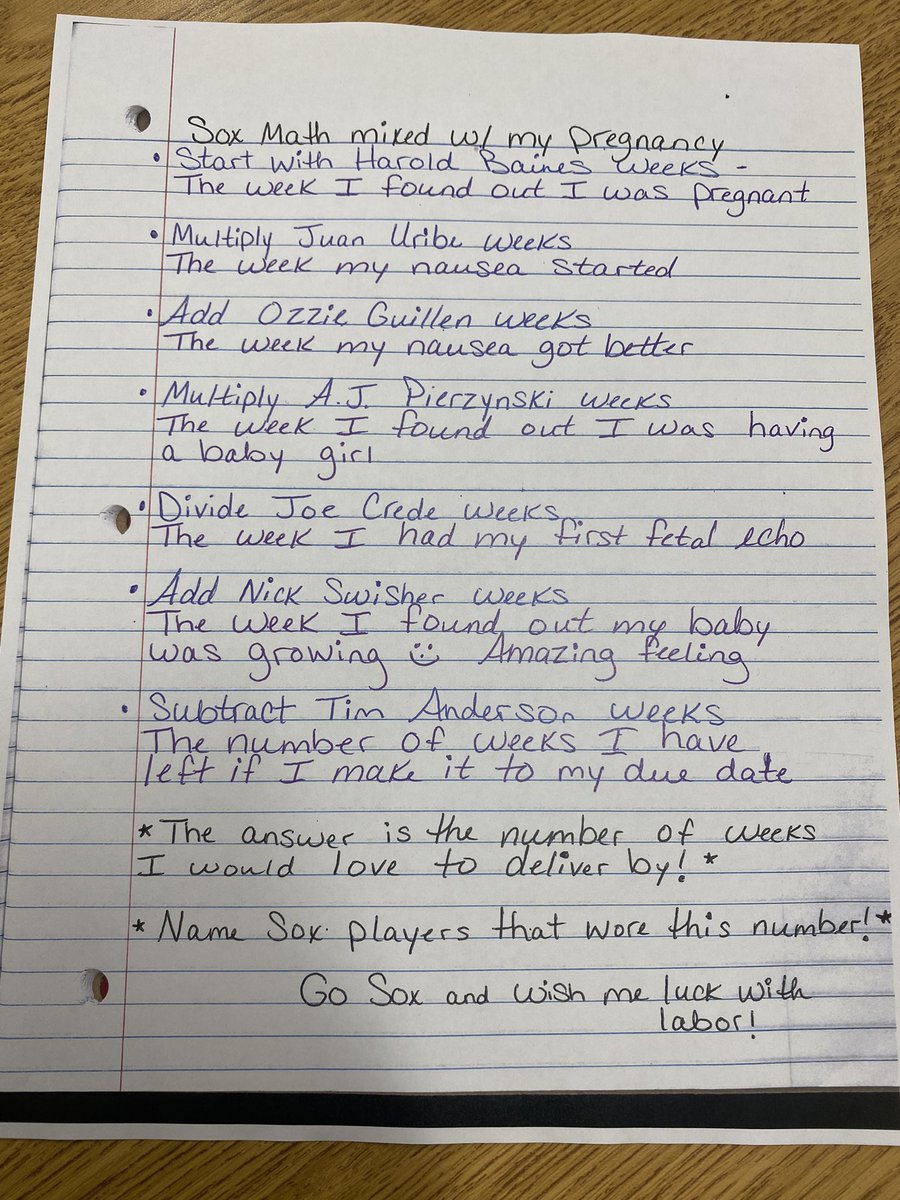 Sox Math mixed w/ my pregnancy
• Start with Harold Baines weeks -
The week I found out I was pregnant
• Multiply Juan Uribe weeks
The week my nausea started
• Add Ozzie Guillen weeks
The week my nausea got better
• Multiply A.J. Pierzynski weeks
The week I found out I was having
a baby girl
• Divide Joe Crede weeks
The week I had my first fetal echo
• Add Nick Swisher weeks
The week I found out my baby
was growing ☺ Amazing feeling
• Subtract Tim Anderson weeks
The number of weeks I have
left if I make it to my due date
*The answer is the number of weeks
I would love to deliver by!*
*Name Sox players that wore this number!*
Go Sox and wish me luck with
labor!